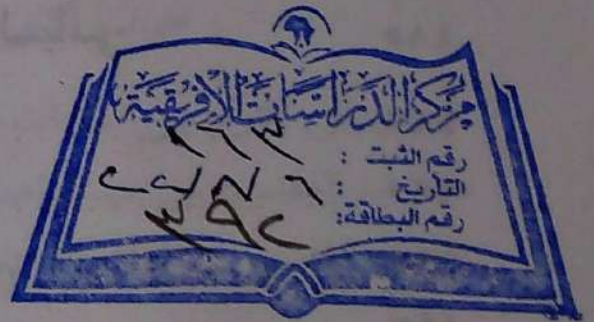 مركز الدراسات الأفريقية
رقم الثبت : ٢٦٣
التاريخ :
رقم البطاقة: ٣٩٢